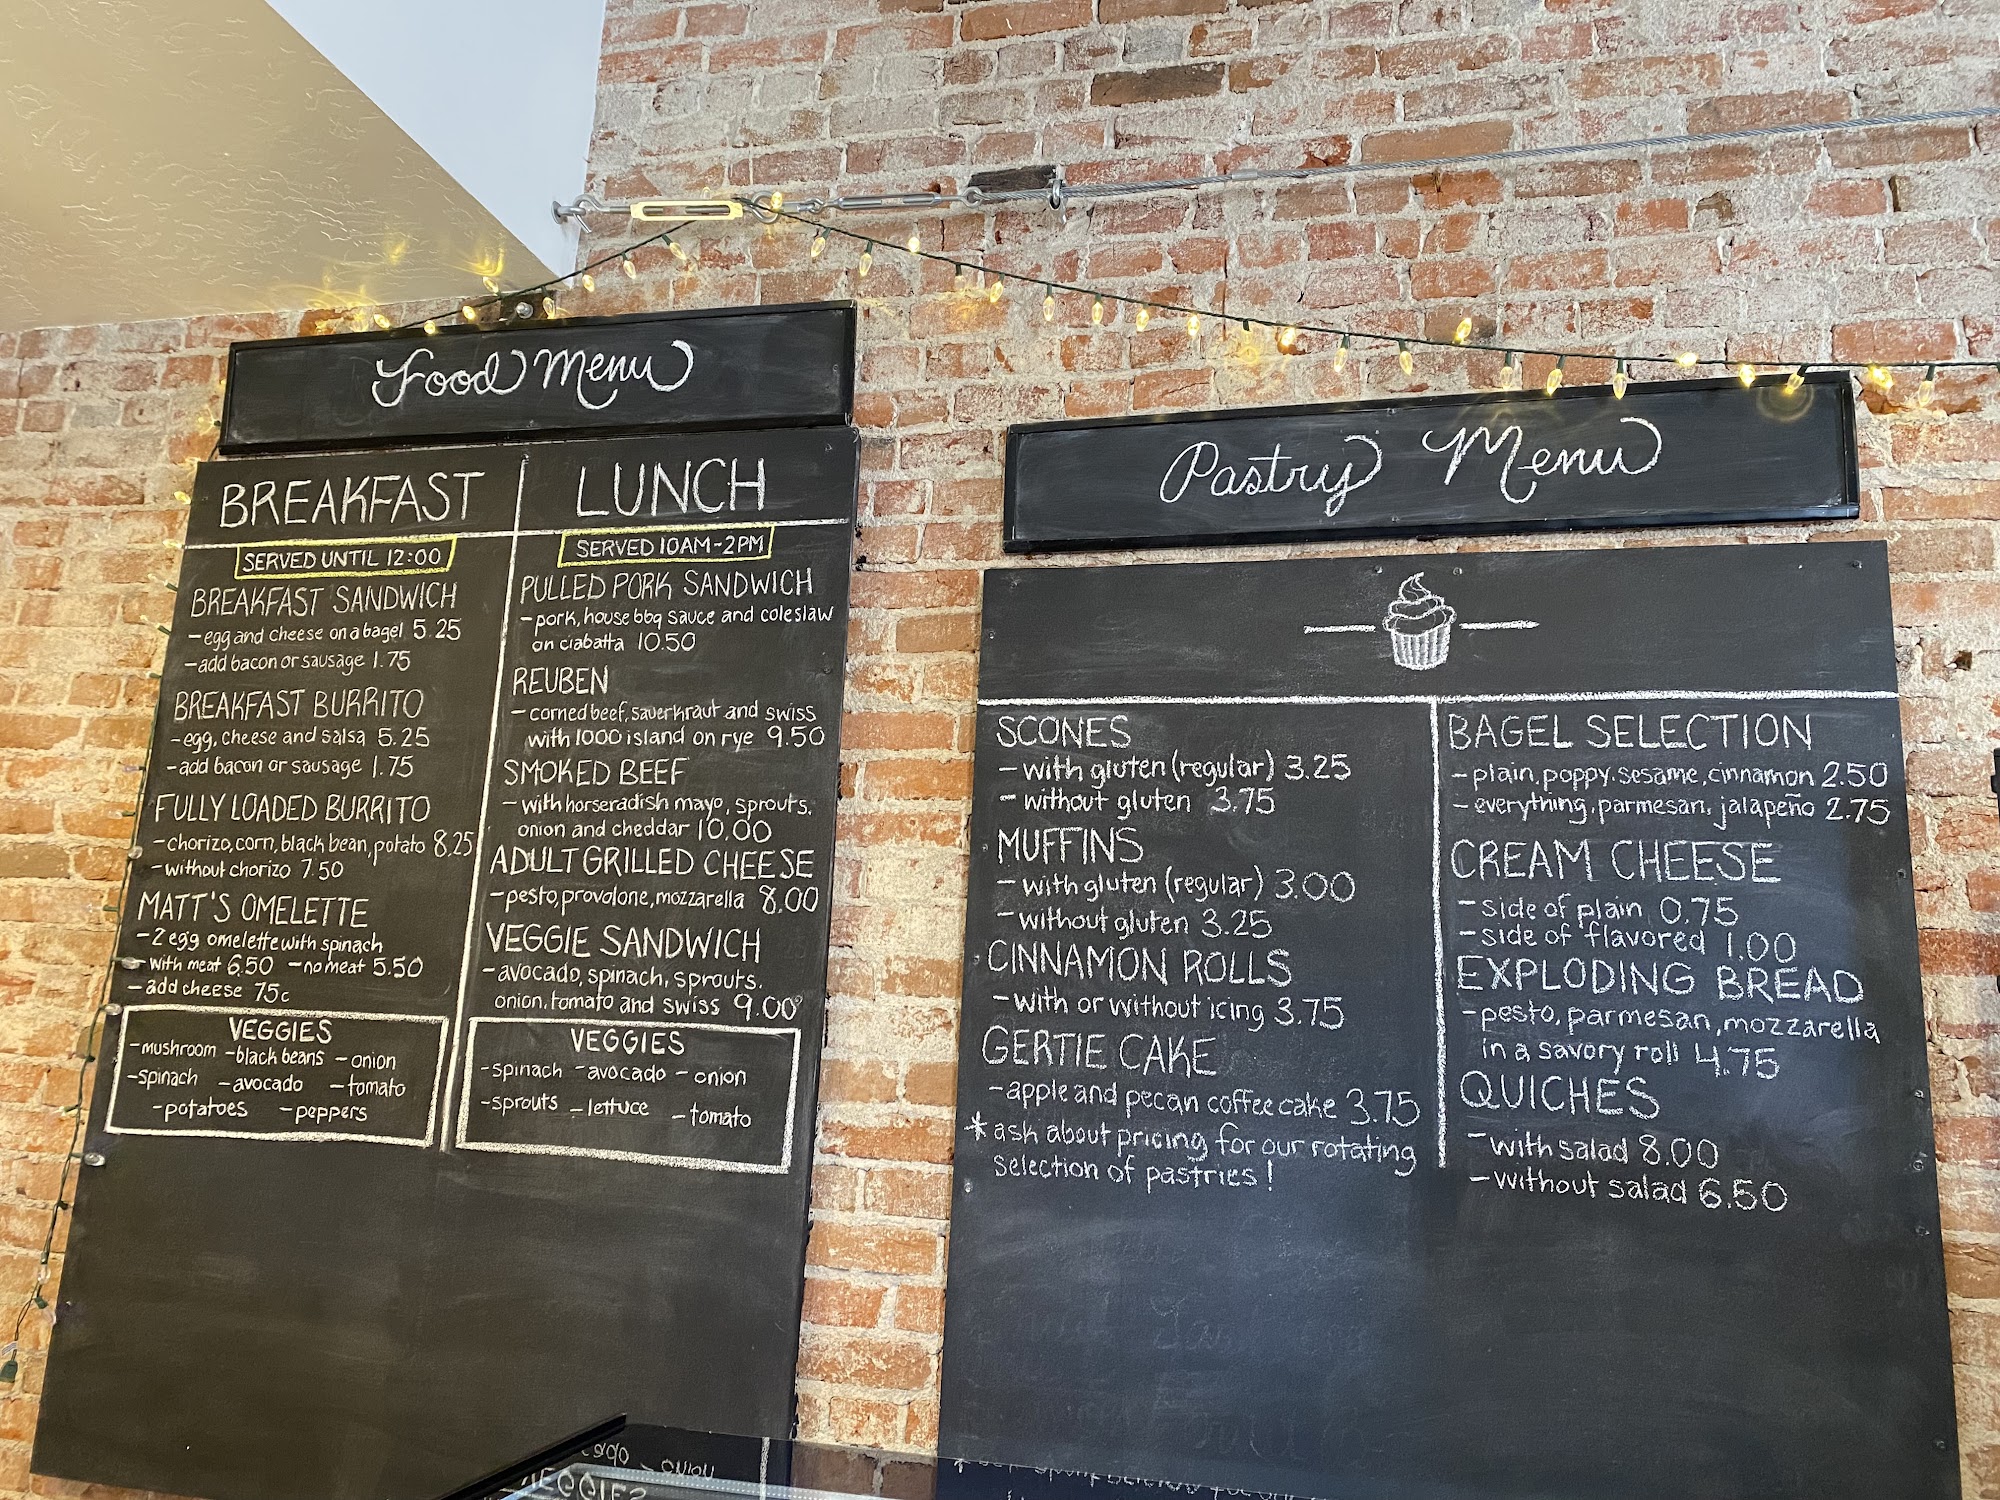 Food Menu
BREAKFAST
SERVED UNTIL 12:00
BREAKFAST SANDWICH
-egg and cheese on a bagel 5.25
-add bacon or sausage 1.75
BREAKFAST BURRITO
-egg, cheese and salsa 5.25
-add bacon or sausage 1.75
FULLY LOADED BURRITO
-chorizo, corn, black bean, potato 8.25
-without chorizo 7.50
MATT'S OMELETTE
-2 egg omelette with spinach
-with meat 6.50 -no meat 5.50
-add cheese 75c
VEGGIES
-mushroom -black beans -onion
-spinach -avocado -tomato
-potatoes -peppers
LUNCH
SERVED 10AM-2PM
PULLED PORK SANDWICH
-pork, house bbq sauce and coleslaw
on ciabatta 10.50
REUBEN
-corned beef, sauerkraut and swiss
with 1000 island on rye 9.50
SMOKED BEEF
-with horseradish mayo, sprouts,
onion and cheddar 10.00
ADULT GRILLED CHEESE
-pesto, provolone, mozzarella 8.00
VEGGIE SANDWICH
-avocado, spinach, sprouts,
onion, tomato and swiss 9.00
VEGGIES
-spinach -avocado -onion
-sprouts -lettuce -tomato
Pastry Menu
SCONES
-with gluten (regular) 3.25
-without gluten 3.75
MUFFINS
-with gluten (regular) 3.00
-without gluten 3.25
CINNAMON ROLLS
-with or without icing 3.75
GERTIE CAKE
-apple and pecan coffee cake 3.75
*ask about pricing for our rotating
selection of pastries!
BAGEL SELECTION
-plain, poppy, sesame, cinnamon 2.50
-everything, parmesan, jalapeño 2.75
CREAM CHEESE
-side of plain 0.75
-side of flavored 1.00
EXPLODING BREAD
-pesto, parmesan, mozzarella
in a savory roll 4.75
QUICHES
-with salad 8.00
-without salad 6.50